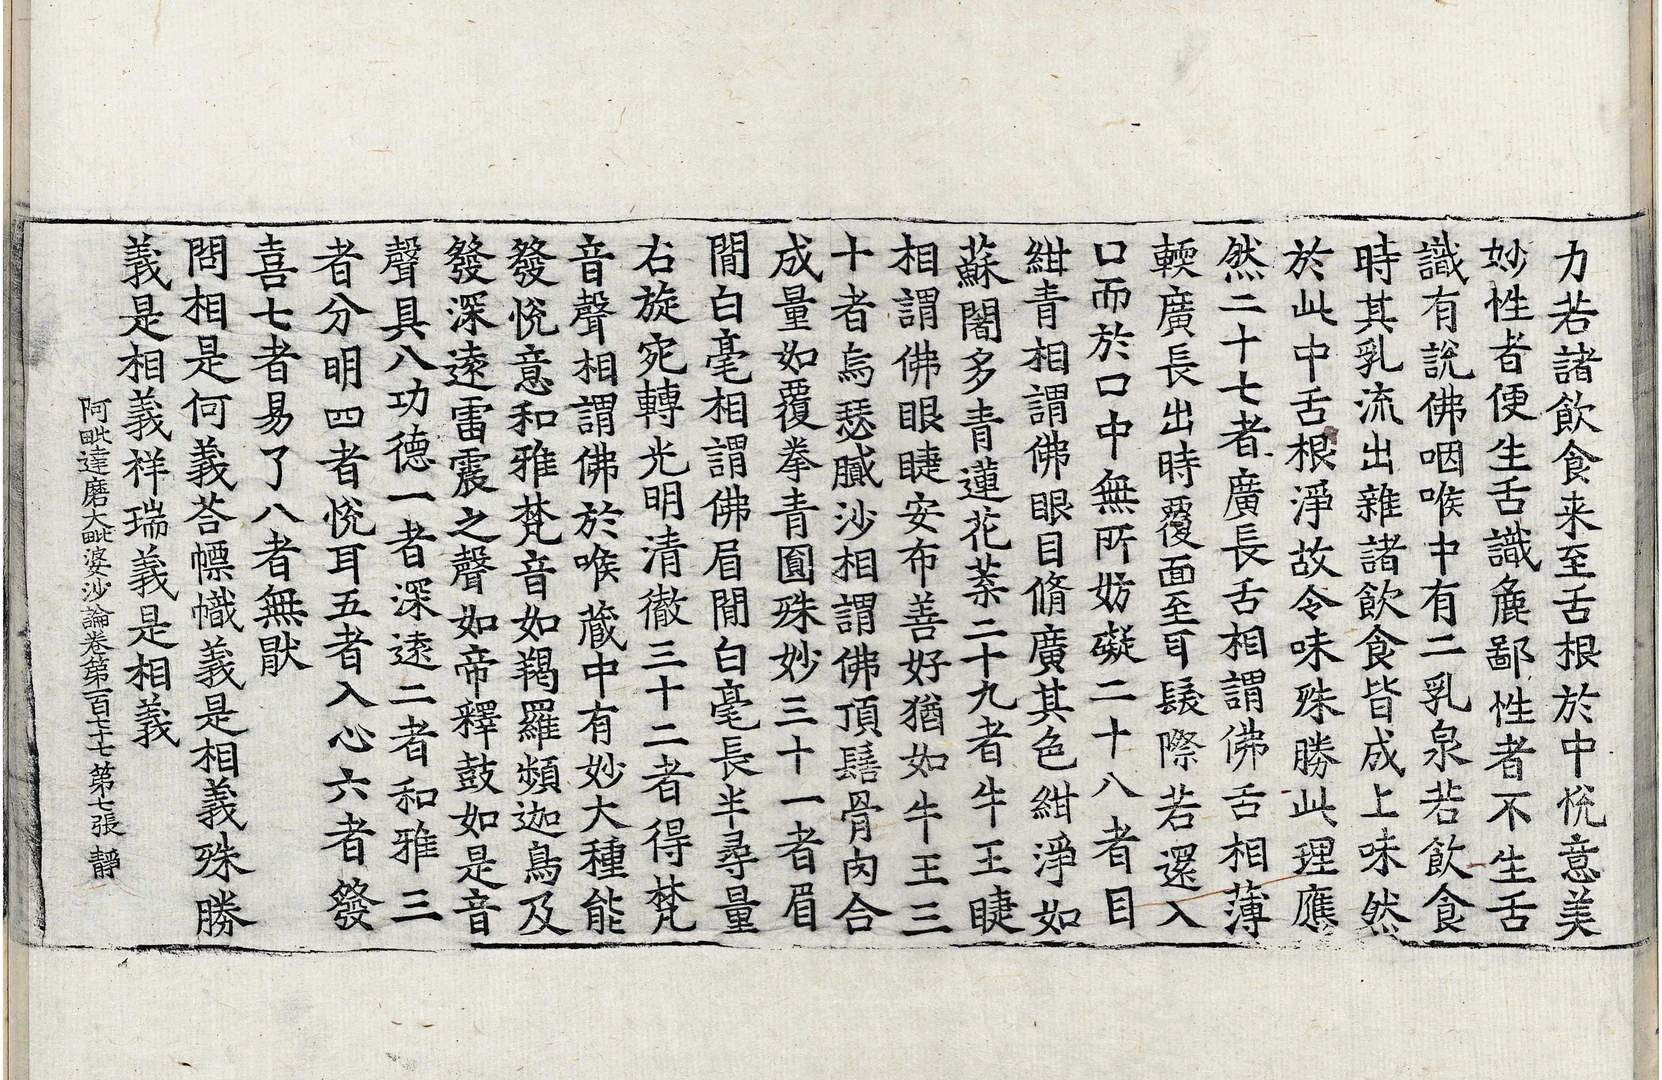 力若諸飮食来至舌根於中悅意美
妙性者便生舌識麁鄙性者不生舌
識有說佛咽喉中有二乳泉若飮食
時其乳流出雜諸飮食皆成上味然
於此中舌根淨故令味殊勝此理應
然二十七者廣長舌相謂佛舌相薄
輭廣長出時覆面至耳髮際若還入
口而於口中無所妨礙二十八者目
紺青相謂佛眼目脩廣其色紺淨如
蘇闍多青蓮花葉二十九者牛王睫
相謂佛眼睫安布善好猶如牛王三
十者烏瑟膩沙相謂佛頂髻骨肉合
成量如覆拳青圓殊妙三十一者眉
間白毫相謂佛眉間白毫長半尋量
右旋宛轉光明清徹三十二者得梵
音聲相謂佛於喉藏中有妙大種能
發悅意和雅梵音如羯羅頻迦鳥及
發深遠雷震之聲如帝釋鼓如是音
聲具八功德一者深遠二者和雅三
者分明四者悅耳五者入心六者發
喜七者易了八者無猒
問相是何義荅幖幟義是相義殊勝
義是相義祥瑞義是相義
阿毗達磨大毗婆沙論卷第一百七十七 第七張 靜